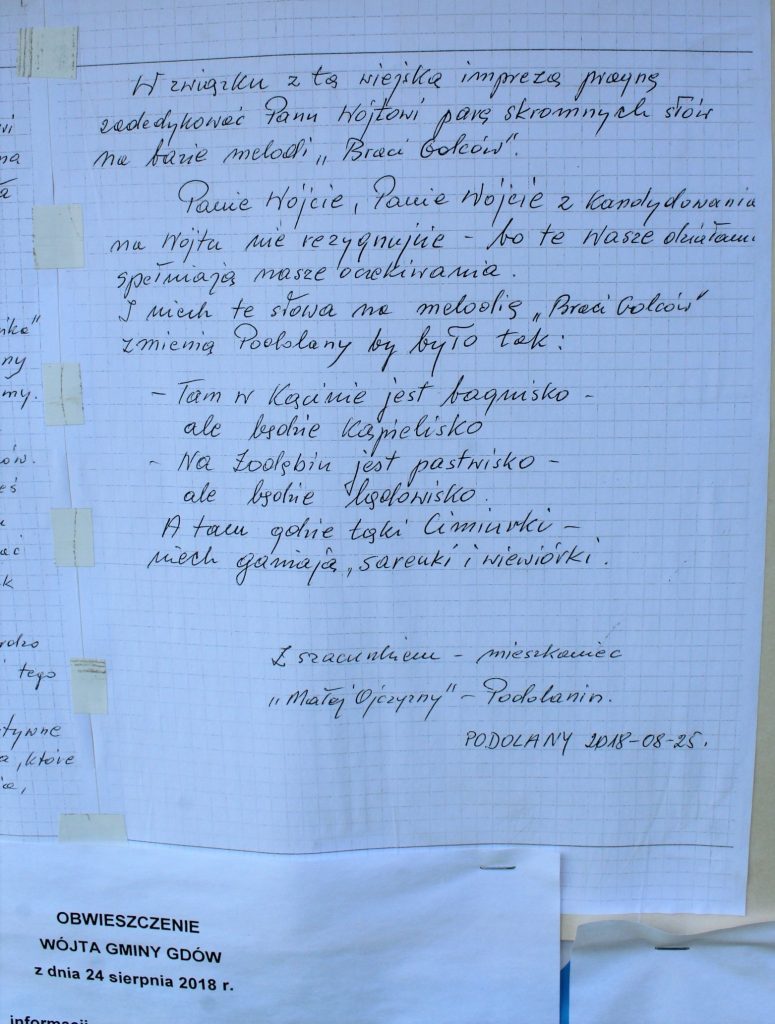 W związku z tą wiejską imprezą pragnę
zadedykować Panu Wójtowi parę skromnych słów
na bazie melodi „Braci Golców".
Panie Wójcie, Panie Wójcie z Kandydowania
na Wójta nie rezygnujcie - bo te Wasze działani
spełniają nasze oczekiwania.
I niech te słowa na melodię „Braci Golców"
zmienią Podolany by było tak:
- Tam w Kącinie jest bagnisko -
ale będzie Kąpielisko
- Na Zodębiu jest pastwisko -
ale będzie lądowisko.
A tam gdzie łąki Cimiurki -
niech ganiają, sarenki i wiewiórki.
Z szacunkiem - mieszkaniec
„Małej Ojczyzny" - Podolanin.
PODOLANY 2018-08-25.
na
ny
my.
ów.
eś
ać
k
tego
tywne
, które
OBWIESZCZENIE
WÓJTA GMINY GDÓW
z dnia 24 sierpnia 2018 r.